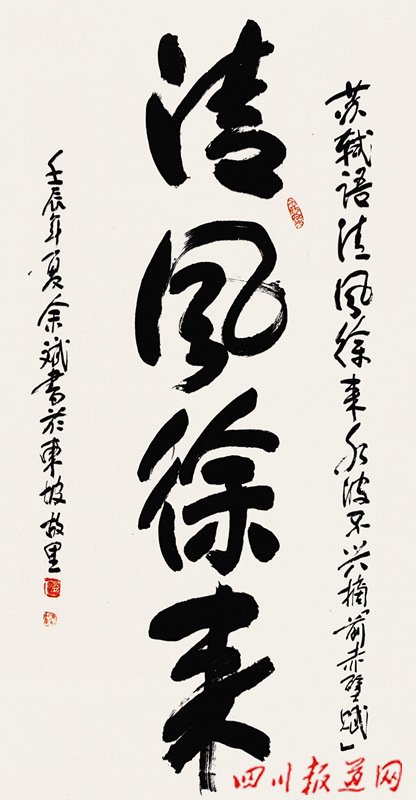 苏轼语清风徐来水波不兴摘「前赤壁赋」
清风徐来
壬辰年夏余斌书於東坡故里
四川报道网